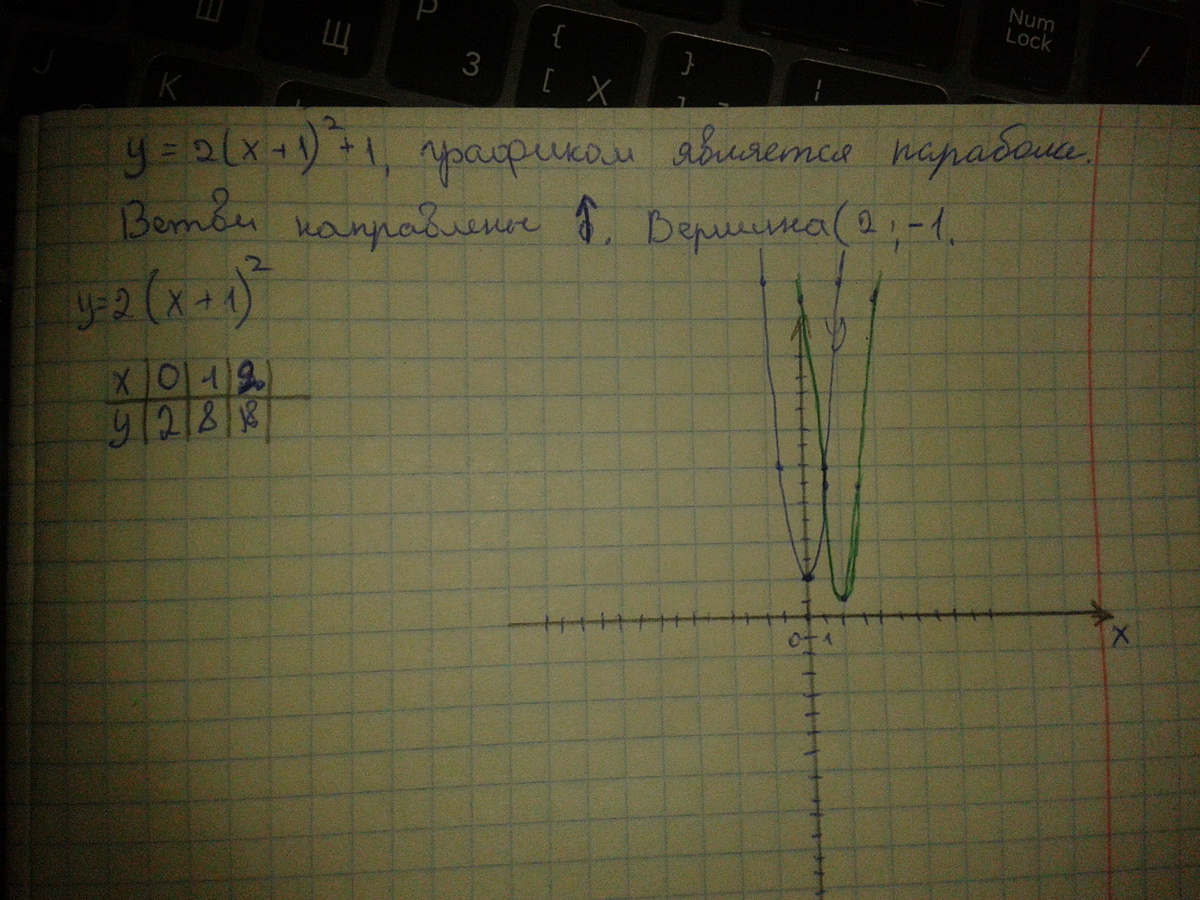 Ш Щ Р З { [ Х } Num Lock /
J K
y = 2(x+1)²+1, графиком является парабола.
Ветви направлены ↑. Вершина (2; -1.
y=2(x+1)²
x | 0 | 1 | 2
y | 2 | 8 | 18
y
0 1
x